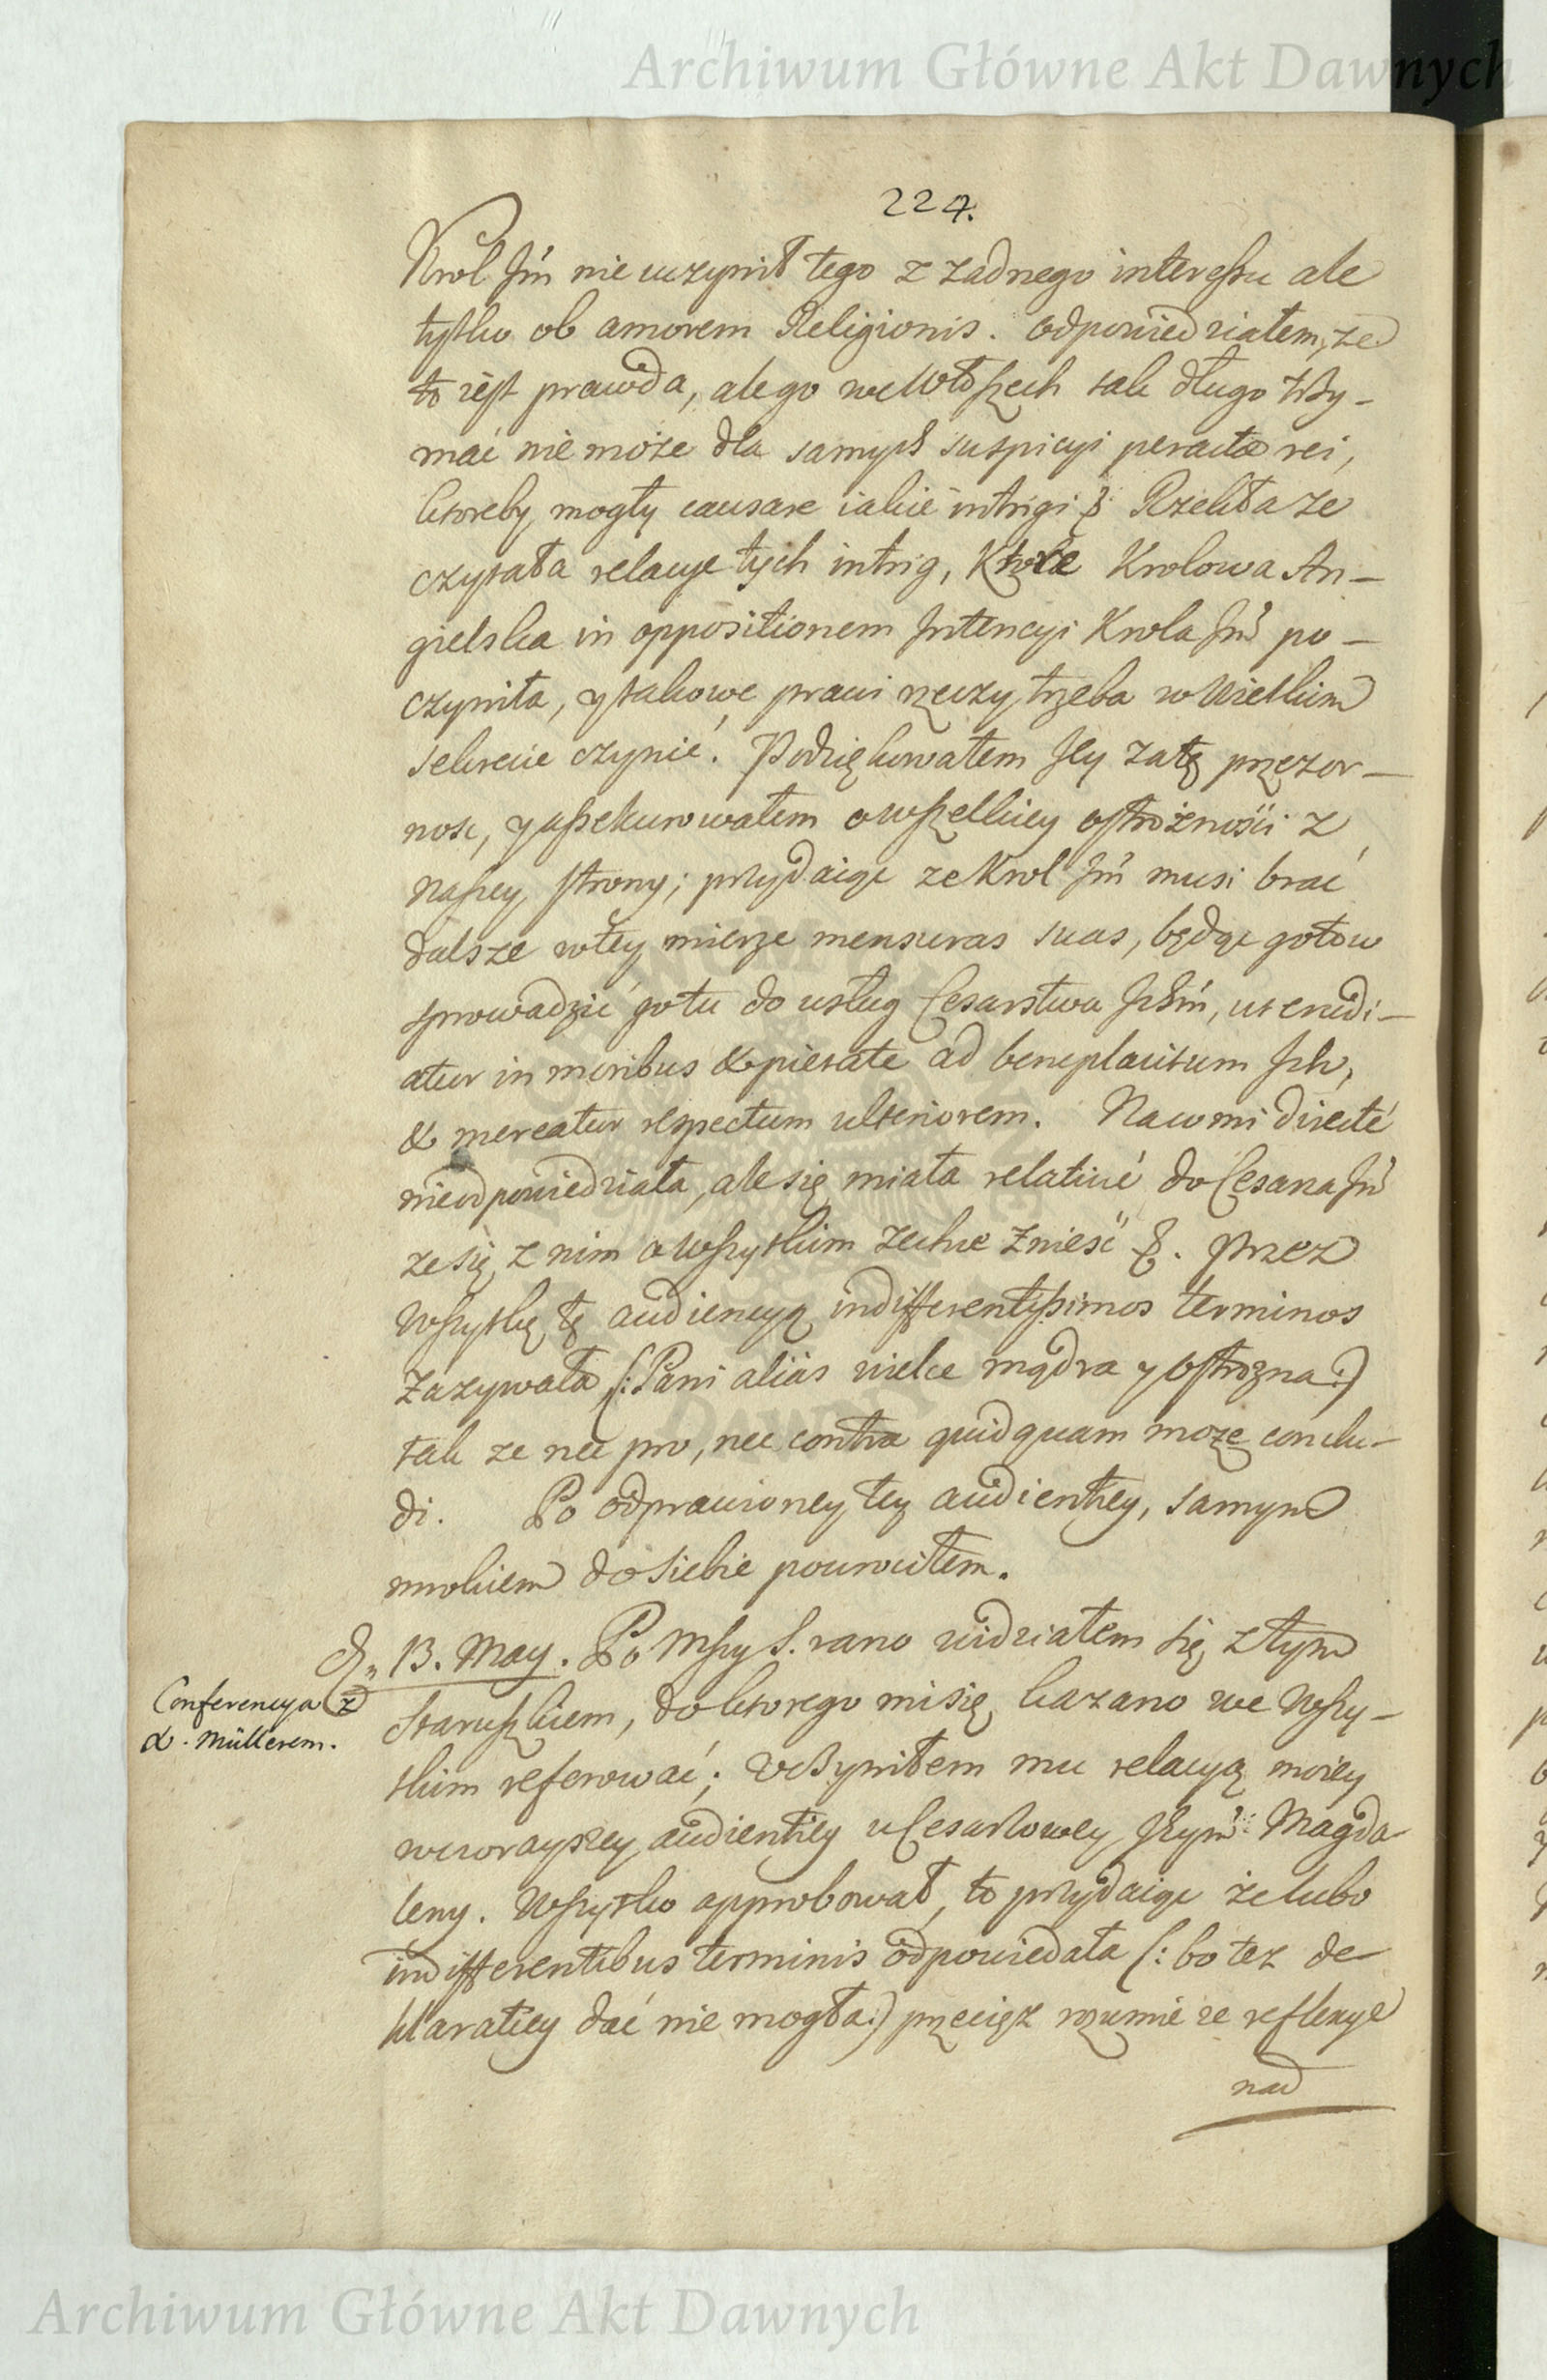 Archiwum Główne Akt Dawnych
224.
Krol Jm nie uczynił tego z zadnego interessu ale
tylko ob amorem Religionis. Odpowiedziałem, ze
to iest prawda, ale go we Włoszech tak długo trzy-
mać nie może dla samych suspicyi peractæ rei,
ktoreby mogły causare iakie intrigi &. Rzekła ze
czytała relacye tych intrig, Ktore Krolowa An-
gielska in oppositionem Intencyi Krola Jmci po-
czyniła, y takowe prawi rzeczy trzeba w wielkim
sekrecie czynić. Podziękowałem Jey za tę przezor-
nosc, y assekurowałem o wszelkiey ostrożności z
naszey strony; przydaiąc ze Krol Jm musi brać
dalsze w tey mierze mensuras suas, będąc gotow
sprowadzić go tu do usług Cesarstwa Ichm, ut erudi-
atur in moribus & pietate ad beneplacitum Ich,
& mereatur respectum ulteriorem. Na co mi directé
nie odpowiedziała, ale się miała relativé do Cesarza Jm
ze się z nim o wszytkim zechce znieść &. Przez
Wszytkę tę audiencyą indifferentissimos terminos
zazywała (: Pani aliàs wielce mądra y ostrozna :)
tak ze nec pro, nec contra quidquam moze conclu-
di. Po odprawioney tey audientiey, samym
mrokiem do siebie powrociłem.
D. 13. May. Po Mszy S. rano widziałem się z tym
Conferencya z
X. Müllerem.
Staruszkiem, do ktorego mi się kazano we wszy-
tkim referować; Uczyniłem mu relacyą moiey
wczorayszey audientiey u Cesarzowey Jeym Magda-
leny. Wszytko approbował, to przydaiąc że lubo
indifferentibus terminis odpowiedała (: bo tez de-
klaratiey dać nie mogła :) przecięz rozumie ze reflexye
nad
Archiwum Główne Akt Dawnych